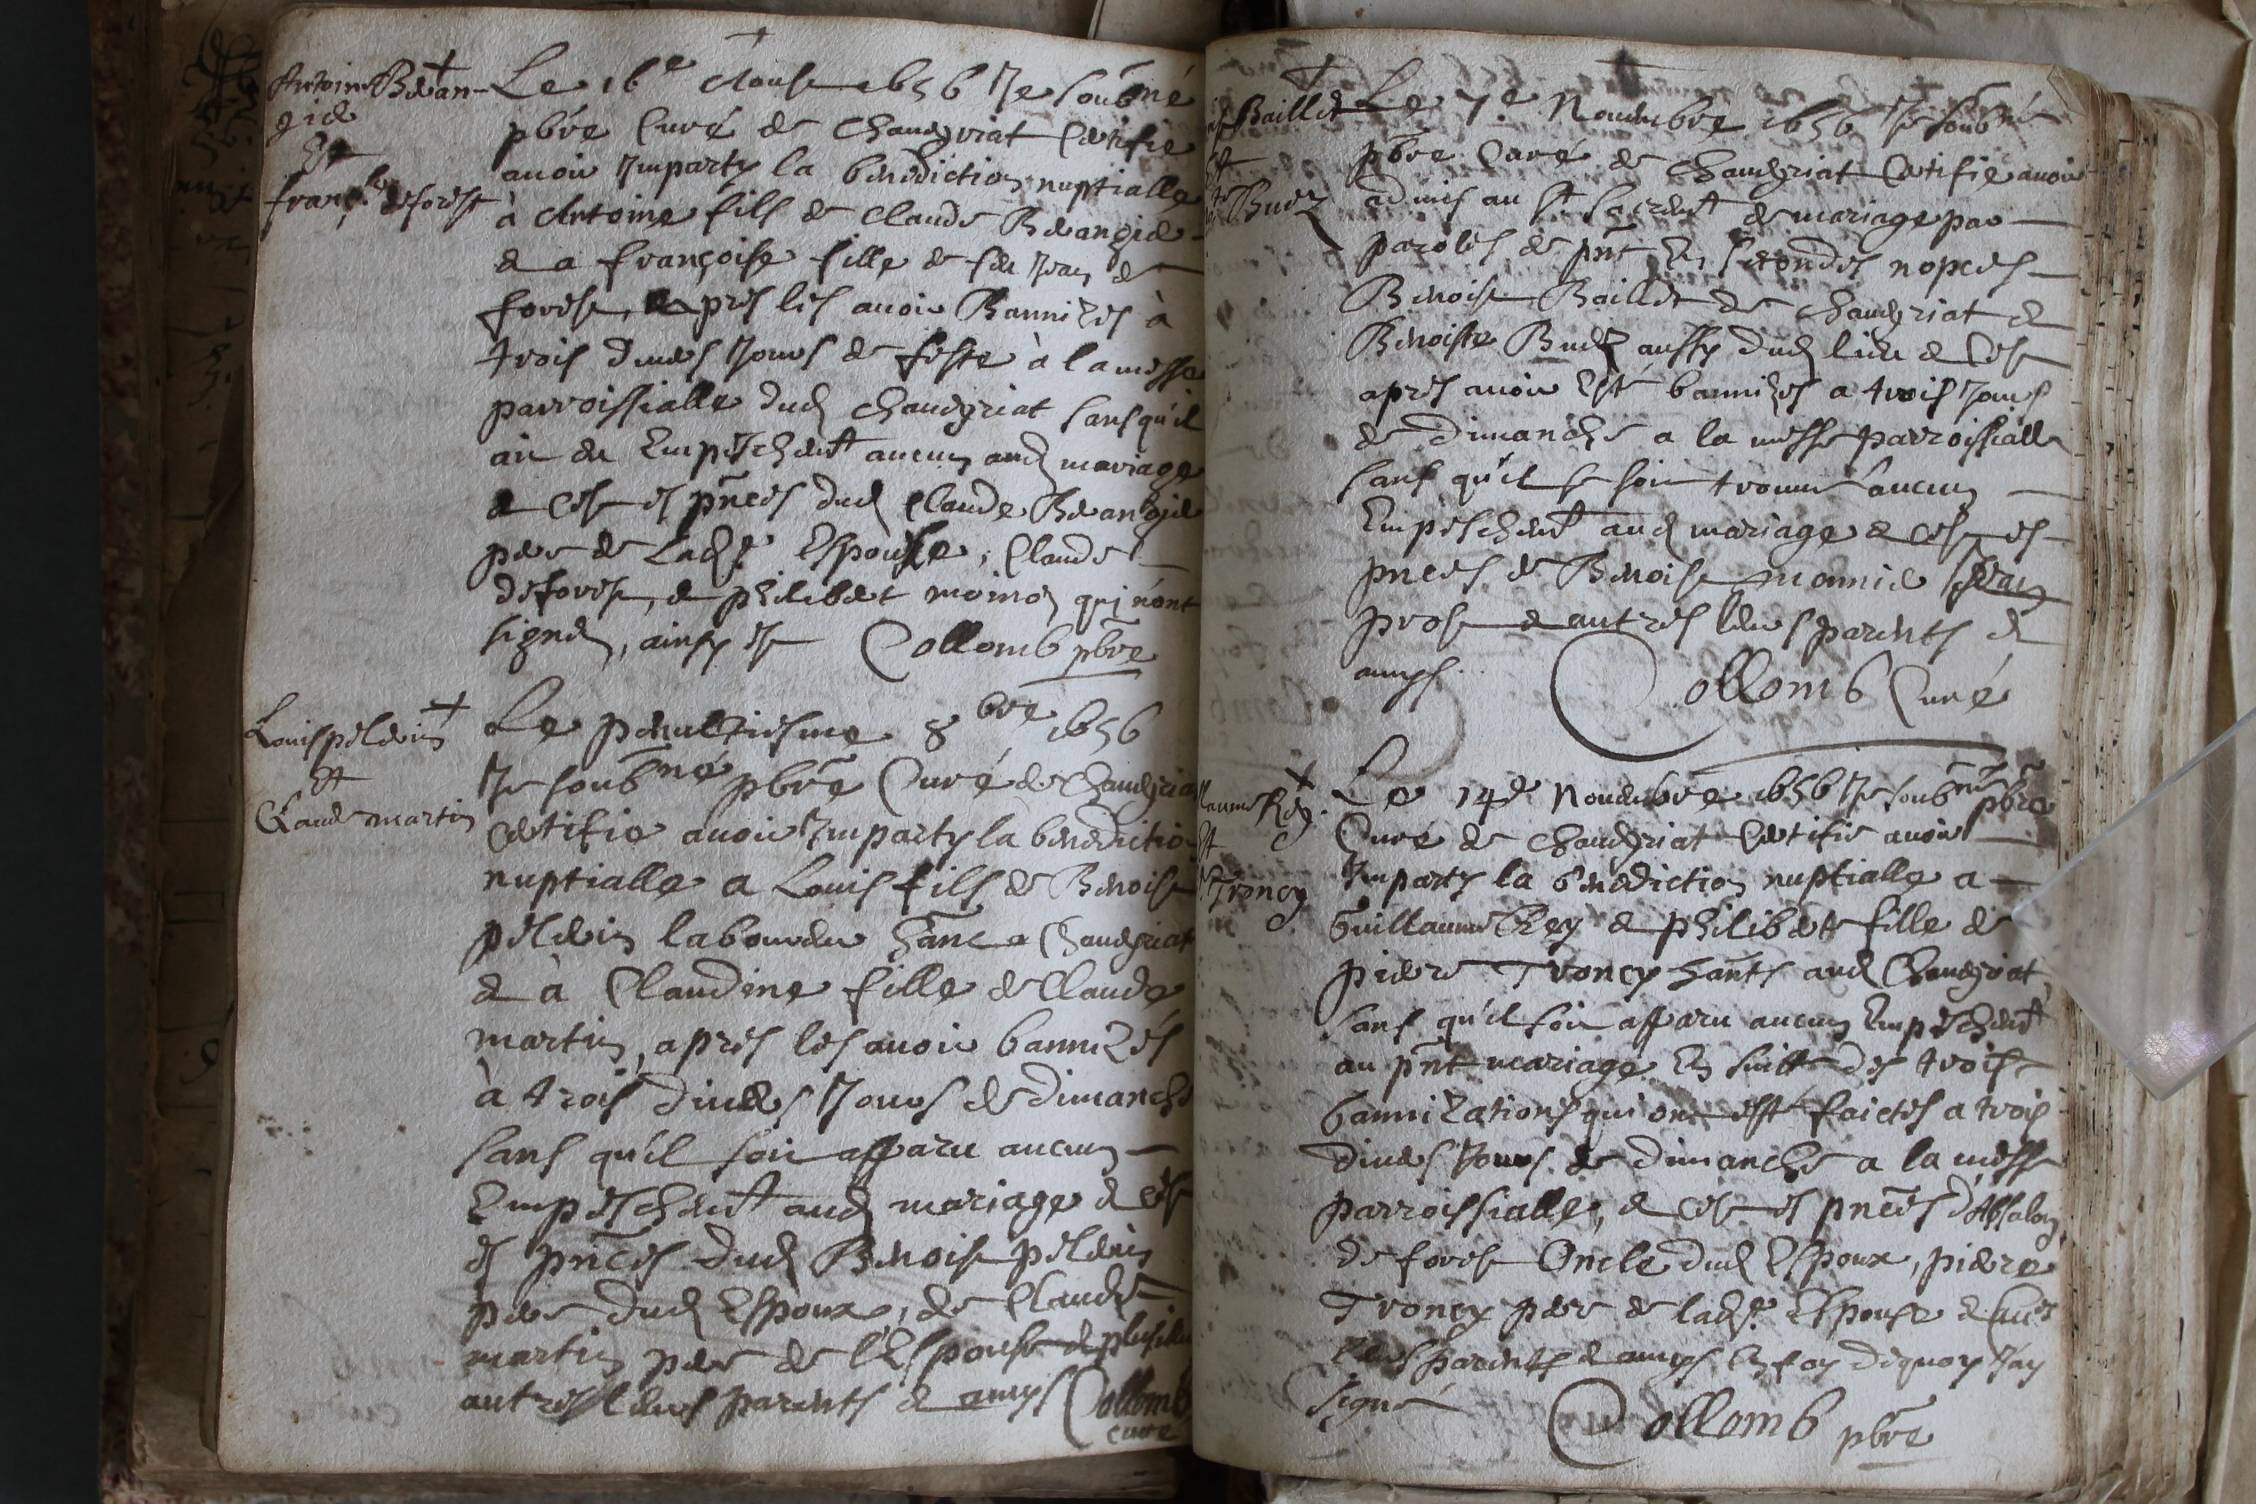 Antoine Beran-
gid
Et
franç.e deforest
Le 16e Aoust 1656 Je soubné
pbre Curé de Chaveyriat Certifie
avoir Imparty la benediction nuptialle
à Antoine fils de Claude Berangid
& a françoise fille de feu Jean de
forest, apres les avoir Bannizes à
trois divers Jours de feste à la messe
parroissialle dud Chaveyriat sans qu'il
aie eu Empeschemt aucun aud mariage
& cest es pnces dud Claude Berangid
pere de Ladte Espouse, Claude
deforest, & philibert moinon qui n'ont
signer, ainsy est Collomb pbre
Louis peldrin
Et
Claude martin
Le penultiesme 8bre 1656
Je soubné pbre Curé de Chaveyria
Certifie avoir Imparty la benedictio
nuptialle a Louis fils de Benoist
peldrin laboureur hant a Chaveyriat
& à Claudine fille de Claude
martin, apres les avoir bannizés
à trois divers Jours de dimanche
sans qu'il soit apparu aucun
Empeschemt aud mariage & cest
es pnces dud Benoist peldrin
pere dud Espoux, de Claude
martin pere de l'Espouse & plusieurs
autres leurs parents & amys Collomb
curé
Baillet
Et
Buez
Le 7e Novembre 1656 Je soubné
pbre Curé de Chaveyriat Certifie avoir
admis au St Sacremt de mariage par
paroles de pnt En secondes nopces
Benoist Baillet de Chaveyriat &
Benoiste Buez aussy dud lieu & Cest
apres avoir esté bannizes a trois Jours
de dimanche a la messe parroissialle
sans qu'il se soit trouvé aucun
Empeschemt aud mariage & cest es
pnces de Benoist monnid Jean
prost & autres leurs parents &
amys. Collomb Curé
llaume Rey.
Et
Troncy
Le 14e Novembre 1656 Je soubné pbre
Curé de Chaveyriat Certifie avoir
Imparty la benediction nuptialle a
Guillaume Rey & philiberte fille de
pierre Troncy hants aud Chaveyriat
sans qu'il soit apparu aucun Empeschemt
au pnt mariage En suitte des trois
bannizations qui ont esté faictes a trois
divers Jours de dimanche a la messe
parroissialle, & cest es pnces d'Absalon
de forest Oncle dud Espoux, pierre
Troncy pere de ladte Espouse &
leurs parents & amys En foy dequoy J'ay
signé Collomb pbre